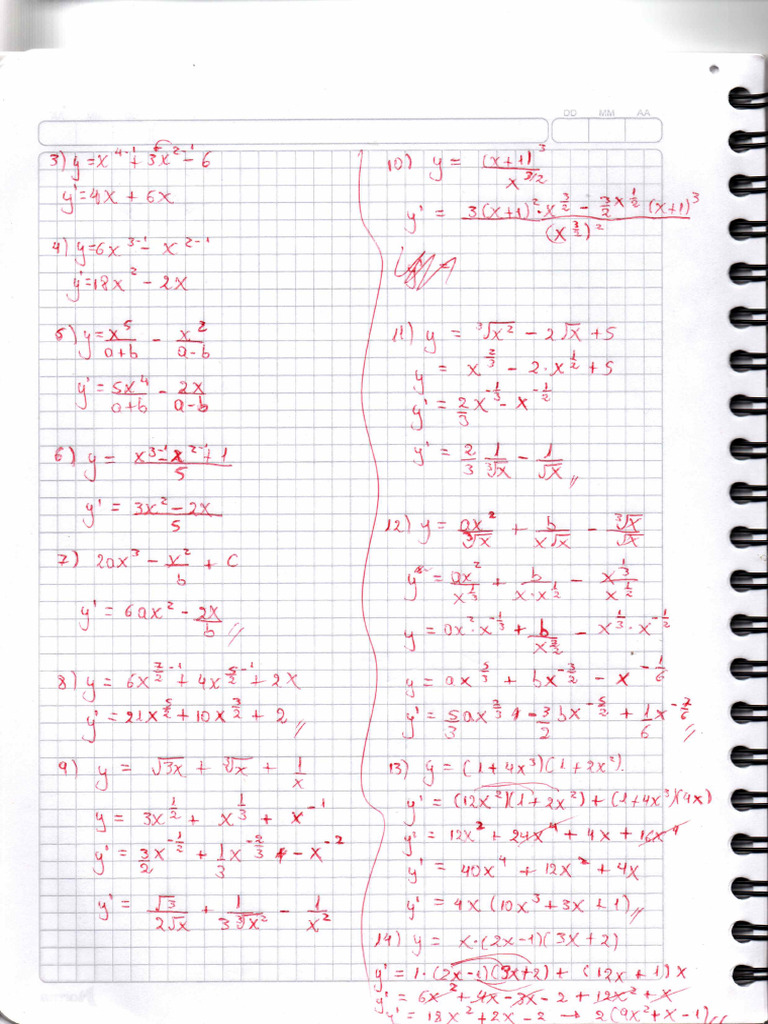 DD MM AA
3) y = x^{4-1} + 3x^{2-1} - 6
y' = 4x + 6x
4) y = 6x^{3-1} - x^{2-1}
y' = 18x^2 - 2x
5) y = x^5/(a+b) - x^2/(a-b)
y' = 5x^4/(a+b) - 2x/(a-b)
6) y = (x^{3-1} - x^{2-1} + 1)/5
y' = (3x^2 - 2x)/5
7) 2ax^3 - x^2/b + C
y' = 6ax^2 - 2x/b //
8) y = 6x^{7/2 -1} + 4x^{5/2 -1} + 2x
y' = 21x^{5/2} + 10x^{3/2} + 2 //
9) y = √3x + ∛x + 1/x
y = 3x^{1/2} + x^{1/3} + x^{-1}
y' = 3/2 x^{-1/2} + 1/3 x^{-2/3} - x^{-2}
y' = √3/(2√x) + 1/(3∛x^2) - 1/x^2
10) y = (x+1)^3/x^{3/2}
y' = (3(x+1)^2 · x^{3/2} - 3/2 x^{1/2} (x+1)^3)/(x^{3/2})^2
11) y = ∛x^2 - 2√x + 5
y = x^{2/3} - 2·x^{1/2} + 5
y' = 2/3 x^{-1/3} - x^{-1/2}
y' = 2/3 1/∛x - 1/√x //
12) y = ax^2/∛x + b/(x√x) - ∛x/√x
y = ax^2/x^{1/3} + b/(x·x^{1/2}) - x^{1/3}/x^{1/2}
y = ax^2·x^{-1/3} + b/x^{3/2} - x^{1/3}·x^{-1/2}
y = ax^{5/3} + bx^{-3/2} - x^{-1/6}
y' = 5/3 ax^{2/3} - 3/2 bx^{-5/2} + 1/6 x^{-7/6} //
13) y = (1+4x^3)(1+2x^2).
y' = (12x^2)(1+2x^2) + (1+4x^3)(4x)
y' = 12x^2 + 24x^4 + 4x + 16x^4
y' = 40x^4 + 12x^2 + 4x
y' = 4x(10x^3 + 3x + 1) //
14) y = x·(2x-1)(3x+2)
y' = 1·(2x-1)(3x+2) + (12x+1)x
y' = 6x^2 + 4x - 3x - 2 + 12x^2 + x
y' = 18x^2 + 2x - 2 → 2(9x^2 + x - 1) //